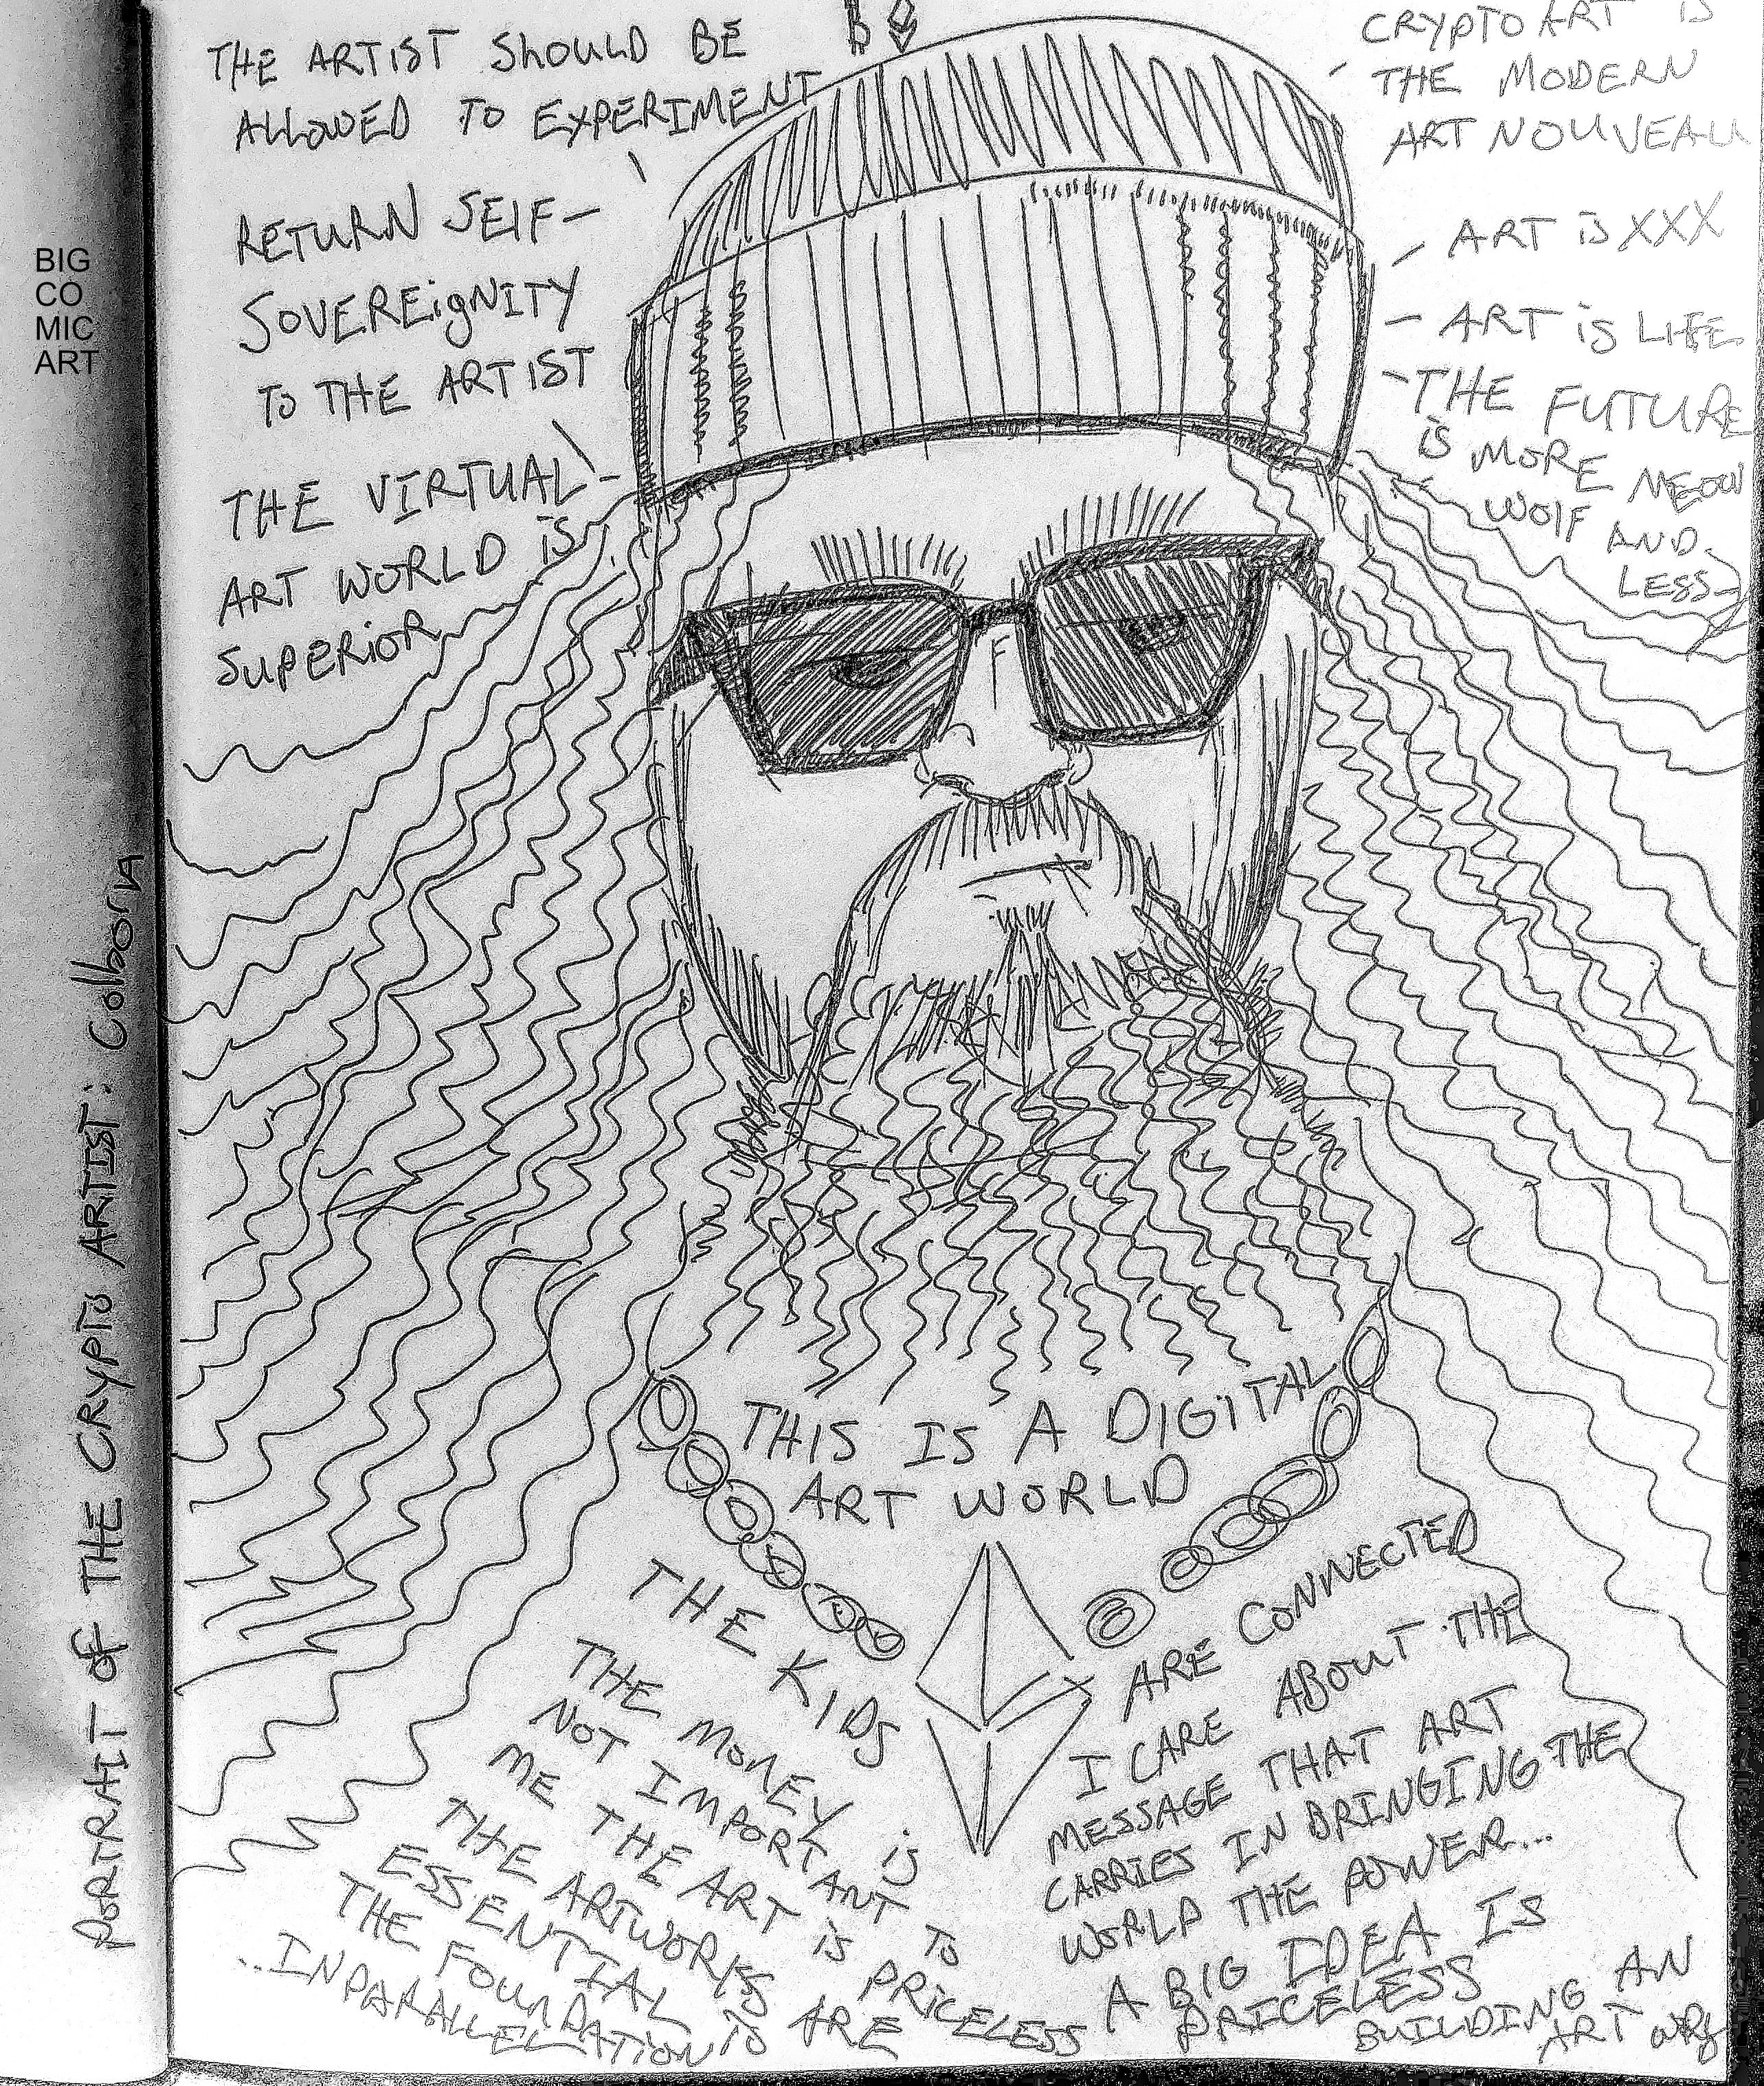 BIG
CO
MIC
ART
PORTRAIT of THE CRYPTO ARTIST: Colborn
THE ARTIST SHOULD BE
ALLOWED TO EXPERIMENT
RETURN SELF-
SOVEREigNITY
TO THE ARTIST
THE VIRTUAL
ART WORLD is
SUPERiOR
B
CRYPTO ART IS
THE MODERN
ART NOUVEAU
- ART is XXX
- ART is LIFE
- THE FUTURE
is MORE MEOW
WOLF AND
LESS
THIS IS A DIGITAL
ART WORLD
THE KIDS
ARE CONNECTED
THE MONEY is
NOT IMPORTANT TO
ME THE ART is PRICELESS
THE ARTWORKS ARE
ESSENTIAL
THE FOUNDATION is
..IN PARALLEL
I CARE ABOUT THE
MESSAGE THAT ART
CARRIES IN BRINGING THE
WORLD THE POWER...
A BIG IDEA IS
PRICELESS
BUILDING AN
ART